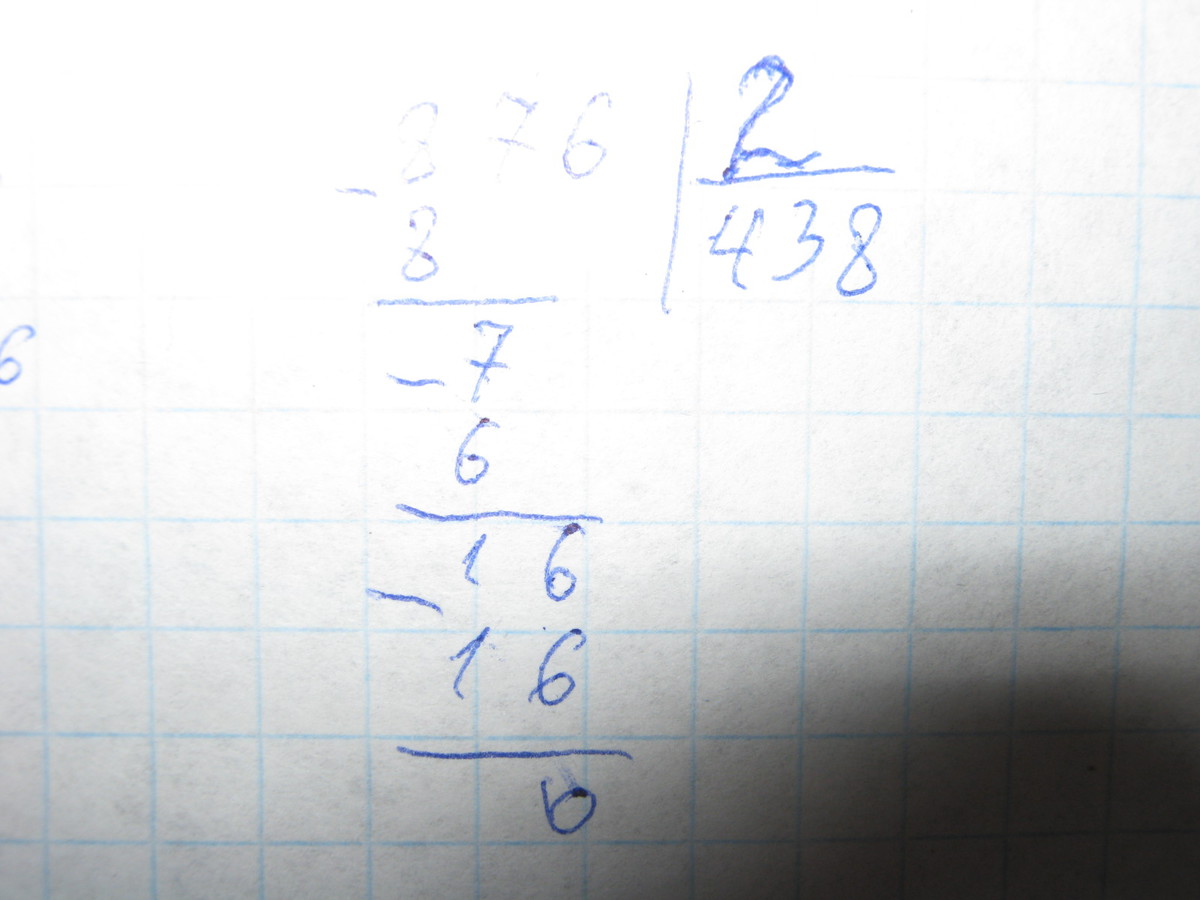 - 876 | 2
8 438
- 7
6
16
- 16
0
6